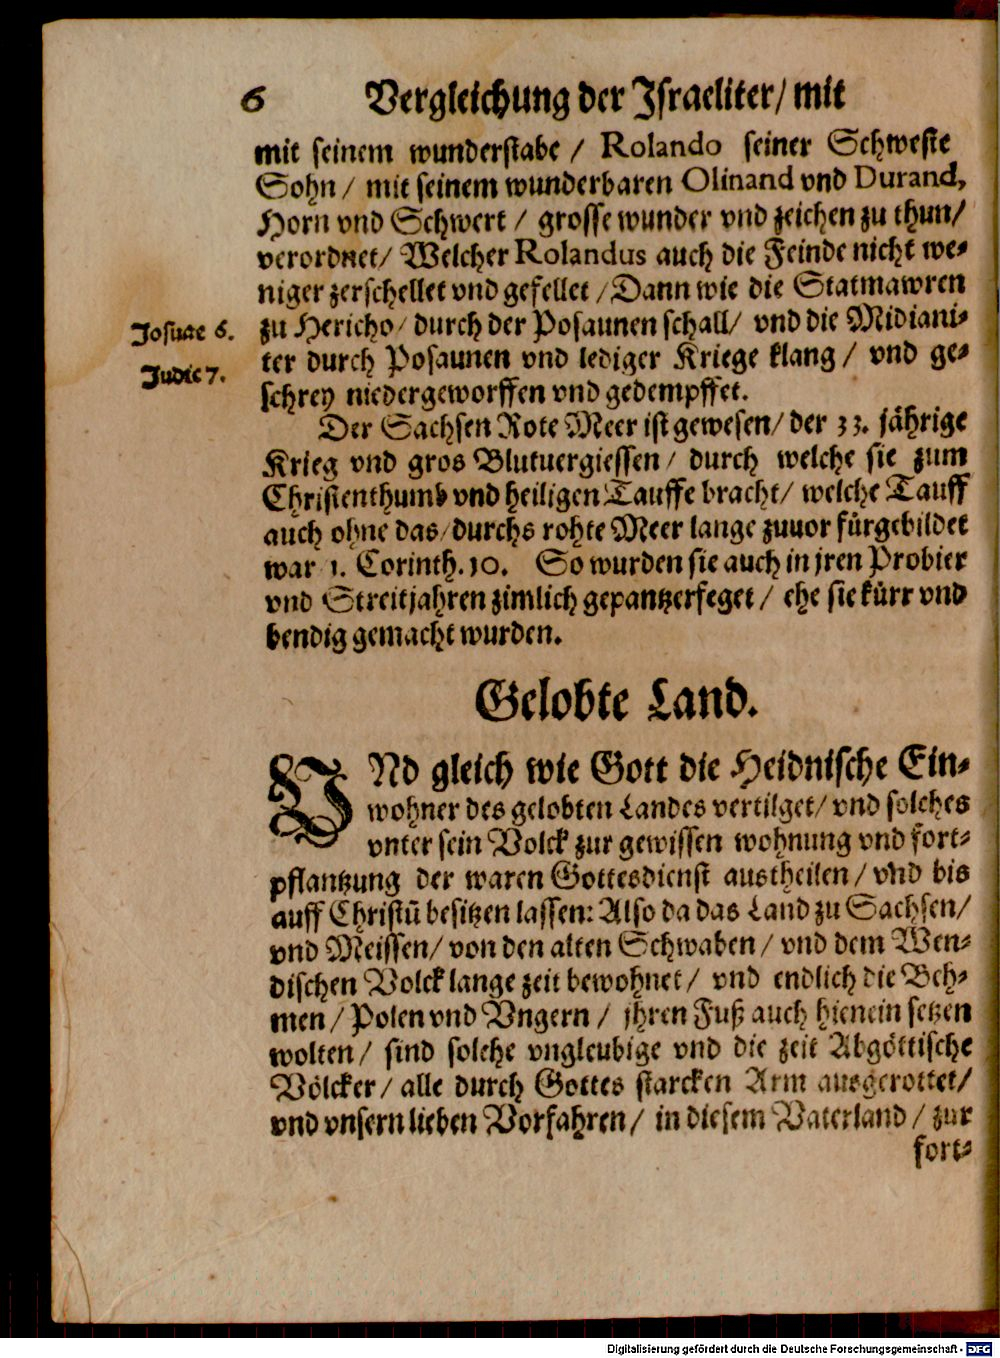 6 Vergleichung der Israeliter/ mit
mit seinem wunderstabe / Rolando seiner Schweste
Sohn / mit seinem wunderbaren Olinand vnd Durand,
Horn vnd Schwert / grosse wunder vnd zeichen zu thun/
verordnet/ Welcher Rolandus auch die Feinde nicht we-
niger zerschellet vnd gefellet / Dann wie die Statmawren
Josuae 6. zu Hericho/ durch der Posaunen schall/ vnd die Midiani-
ter durch Posaunen vnd lediger Kriege klang / vnd ge-
Judic 7. schrey niedergeworffen vnd gedempffet.
Der Sachsen Rote Meer ist gewesen/ der 33. jährige
Krieg vnd gros Blutuergiessen / durch welche sie zum
Christenthumb vnd heiligen Tauffe bracht/ welche Tauff
auch ohne das/ durchs rohte Meer lange zuuor fürgebildet
war 1. Corinth. 10. So wurden sie auch in jren Probier
vnd Streitjahren zimlich gepantzerfeget / ehe sie kürr vnd
bendig gemacht wurden.
Gelobte Land.
VNd gleich wie Gott die Heidnische Ein-
wohner des gelobten Landes vertilget/ vnd solches
vnter sein Volck zur gewissen wohnung vnd fort-
pflantzung der waren Gottesdienst austheilen / vnd bis
auff Christū besitzen lassen: Also da das Land zu Sachsen/
vnd Meissen/ von den alten Schwaben / vnd dem Wen-
dischen Volck lange zeit bewohnet / vnd endlich die Beh-
men / Polen vnd Vngern / jhren Fuß auch hienein setzen
wolten / sind solche vngleubige vnd die zeit Abgöttische
Völcker / alle durch Gottes starcken Arm ausgerottet/
vnd vnsern lieben Vorfahren / in diesem Vaterland / zur
fort-
Digitalisierung gefördert durch die Deutsche Forschungsgemeinschaft - DFG